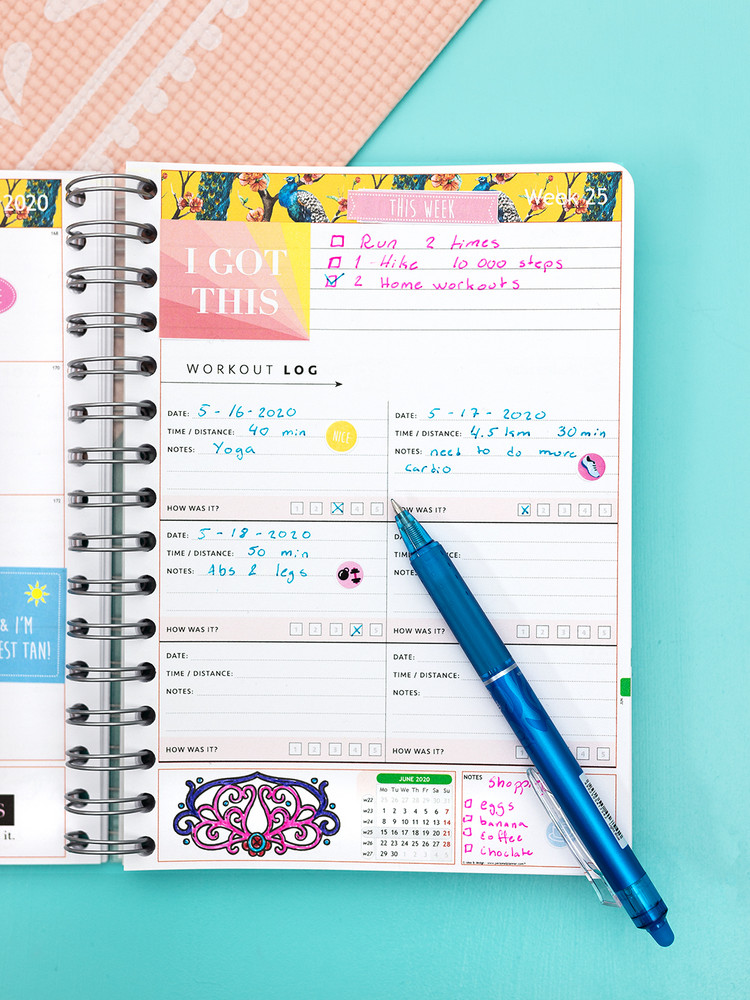 2020
168
170
173
& I'M
EST TAN!
S
it.
Week 25
THIS WEEK
I GOT
THIS
Run 2 times
1 - Hike 10 000 steps
2 Home workouts
WORKOUT LOG
DATE: 5-16-2020
TIME / DISTANCE: 40 min
NICE
NOTES: Yoga
HOW WAS IT? 1 2 3 4 5
DATE: 5-17-2020
TIME / DISTANCE: 4.5 km 30 min
NOTES: need to do more
cardio
HOW WAS IT? 1 2 3 4 5
DATE: 5-18-2020
TIME / DISTANCE: 50 min
NOTES: Abs & legs
HOW WAS IT? 1 2 3 4 5
TIME / DISTANCE:
NOTES
HOW WAS IT? 1 2 3 4 5
DATE:
TIME / DISTANCE:
NOTES:
HOW WAS IT? 1 2 3 4 5
DATE:
TIME / DISTANCE:
NOTES:
HOW WAS IT?
JUNE 2020
Mo Tu We Th Fr Sa Su
w22 25 26 27 28 29 30 31
w23 1 2 3 4 5 6 7
w24 8 9 10 11 12 13 14
w25 15 16 17 18 19 20 21
w26 22 23 24 25 26 27 28
w27 29 30 1 2 3 4 5
NOTES
Shopp
eggs
banana
Coffee
Choclate